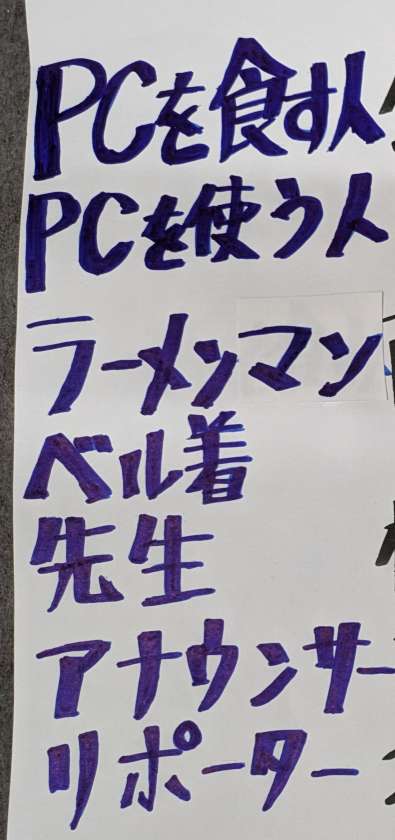 PCを食す人
PCを使う人
ラーメンマン
ベル着
先生
アナウンサー
リポーター